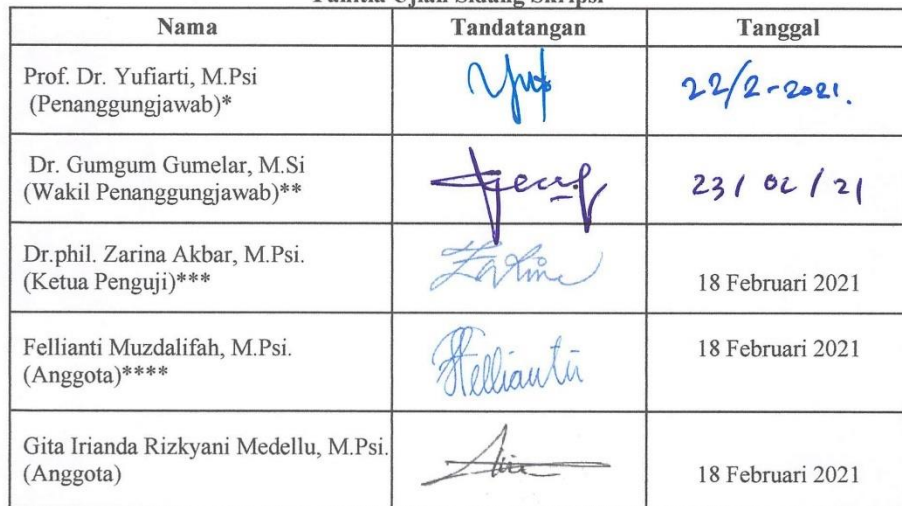 Panitia Ujian Sidang Skripsi
Nama Tandatangan Tanggal
Prof. Dr. Yufiarti, M.Psi
(Penanggungjawab)*
22/2-2021.
Dr. Gumgum Gumelar, M.Si
(Wakil Penanggungjawab)**
23/02/21
Dr.phil. Zarina Akbar, M.Psi.
(Ketua Penguji)***
Zarina
18 Februari 2021
Fellianti Muzdalifah, M.Psi.
(Anggota)****
Fellianti
18 Februari 2021
Gita Irianda Rizkyani Medellu, M.Psi.
(Anggota)
18 Februari 2021